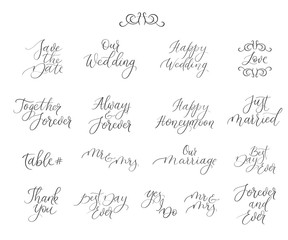 Save the Date
Our Wedding
Happy Wedding
Love
Together Forever
Always & Forever
Happy Honeymoon
Just Married
Table #
Mr & Mrs
Our Marriage
Best Day Ever
Thank You
Best Day Ever
Yes I Do
Mr & Mrs
Forever and Ever